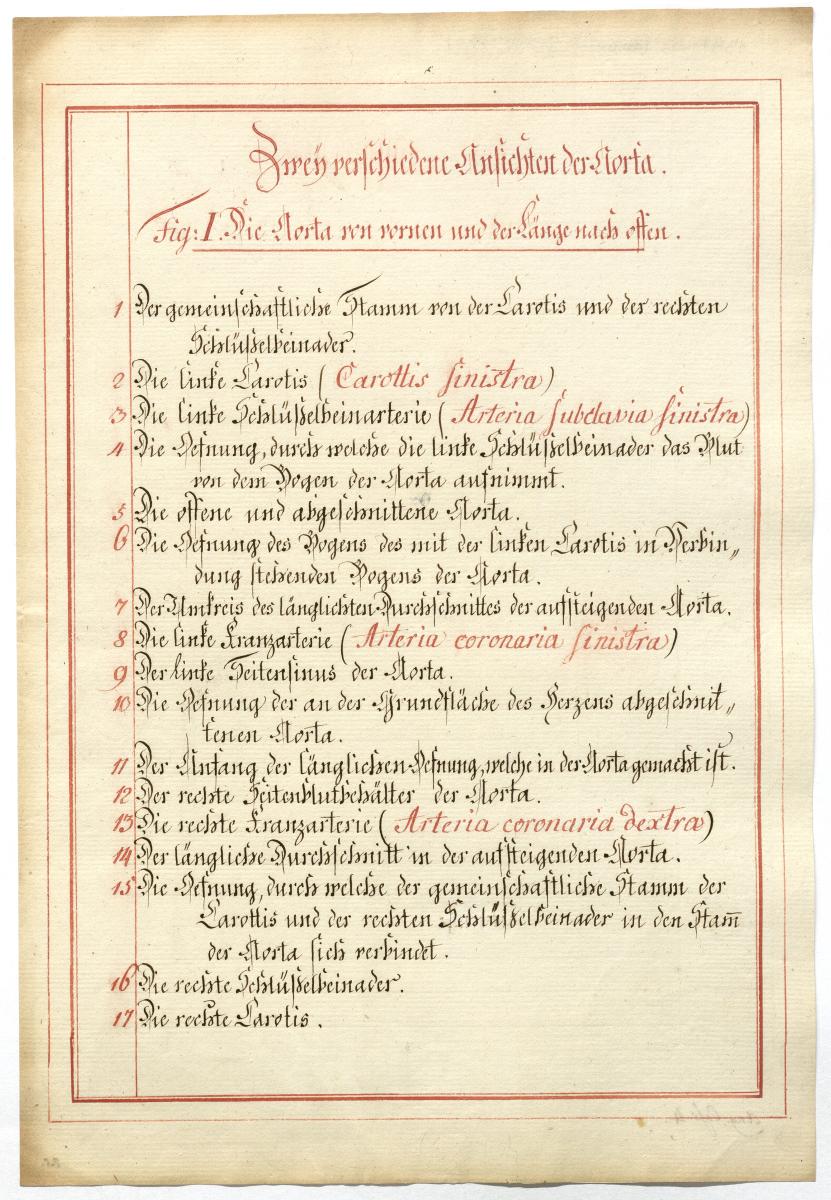 Zwey verschiedene Ansichten der Aorta.
Fig: I. Die Aorta von vornen und der Länge nach offen.
1 Der gemeinschaftliche Stamm von der Carotis und der rechten
Schlüßelbeinader.
2 Die linke Carotis (Carottis sinistra)
3 Die linke Schlüßelbeinarterie (Arteria subclavia sinistra)
4 Die Oefnung, durch welche die linke Schlüßelbeinader das Blut
von dem Bogen der Aorta aufnimmt.
5 Die offene und abgeschnittene Aorta.
6 Die Oefnung des Bogens des mit der linken Carotis in Verbin„
dung stehenden Bogens der Aorta.
7 Der Umkreis des länglichten Durchschnittes der aufsteigenden Aorta.
8 Die linke Kranzarterie (Arteria coronaria sinistra)
9 Der linke Seitensinus der Aorta.
10 Die Oefnung der an der Grundfläche des Herzens abgeschnit„
tenen Aorta.
11 Der Anfang der länglichen Oefnung, welche in der Aorta gemacht ist.
12 Der rechte Seitenblutbehälter der Aorta.
13 Die rechte Kranzarterie (Arteria coronaria dextra)
14 Der längliche Durchschnitt in der aufsteigenden Aorta.
15 Die Oefnung, durch welche der gemeinschaftliche Stamm der
Carottis und der rechten Schlüßelbeinader in den Stam̅
der Aorta sich verbindet.
16 Die rechte Schlüßelbeinader.
17 Die rechte Carotis.